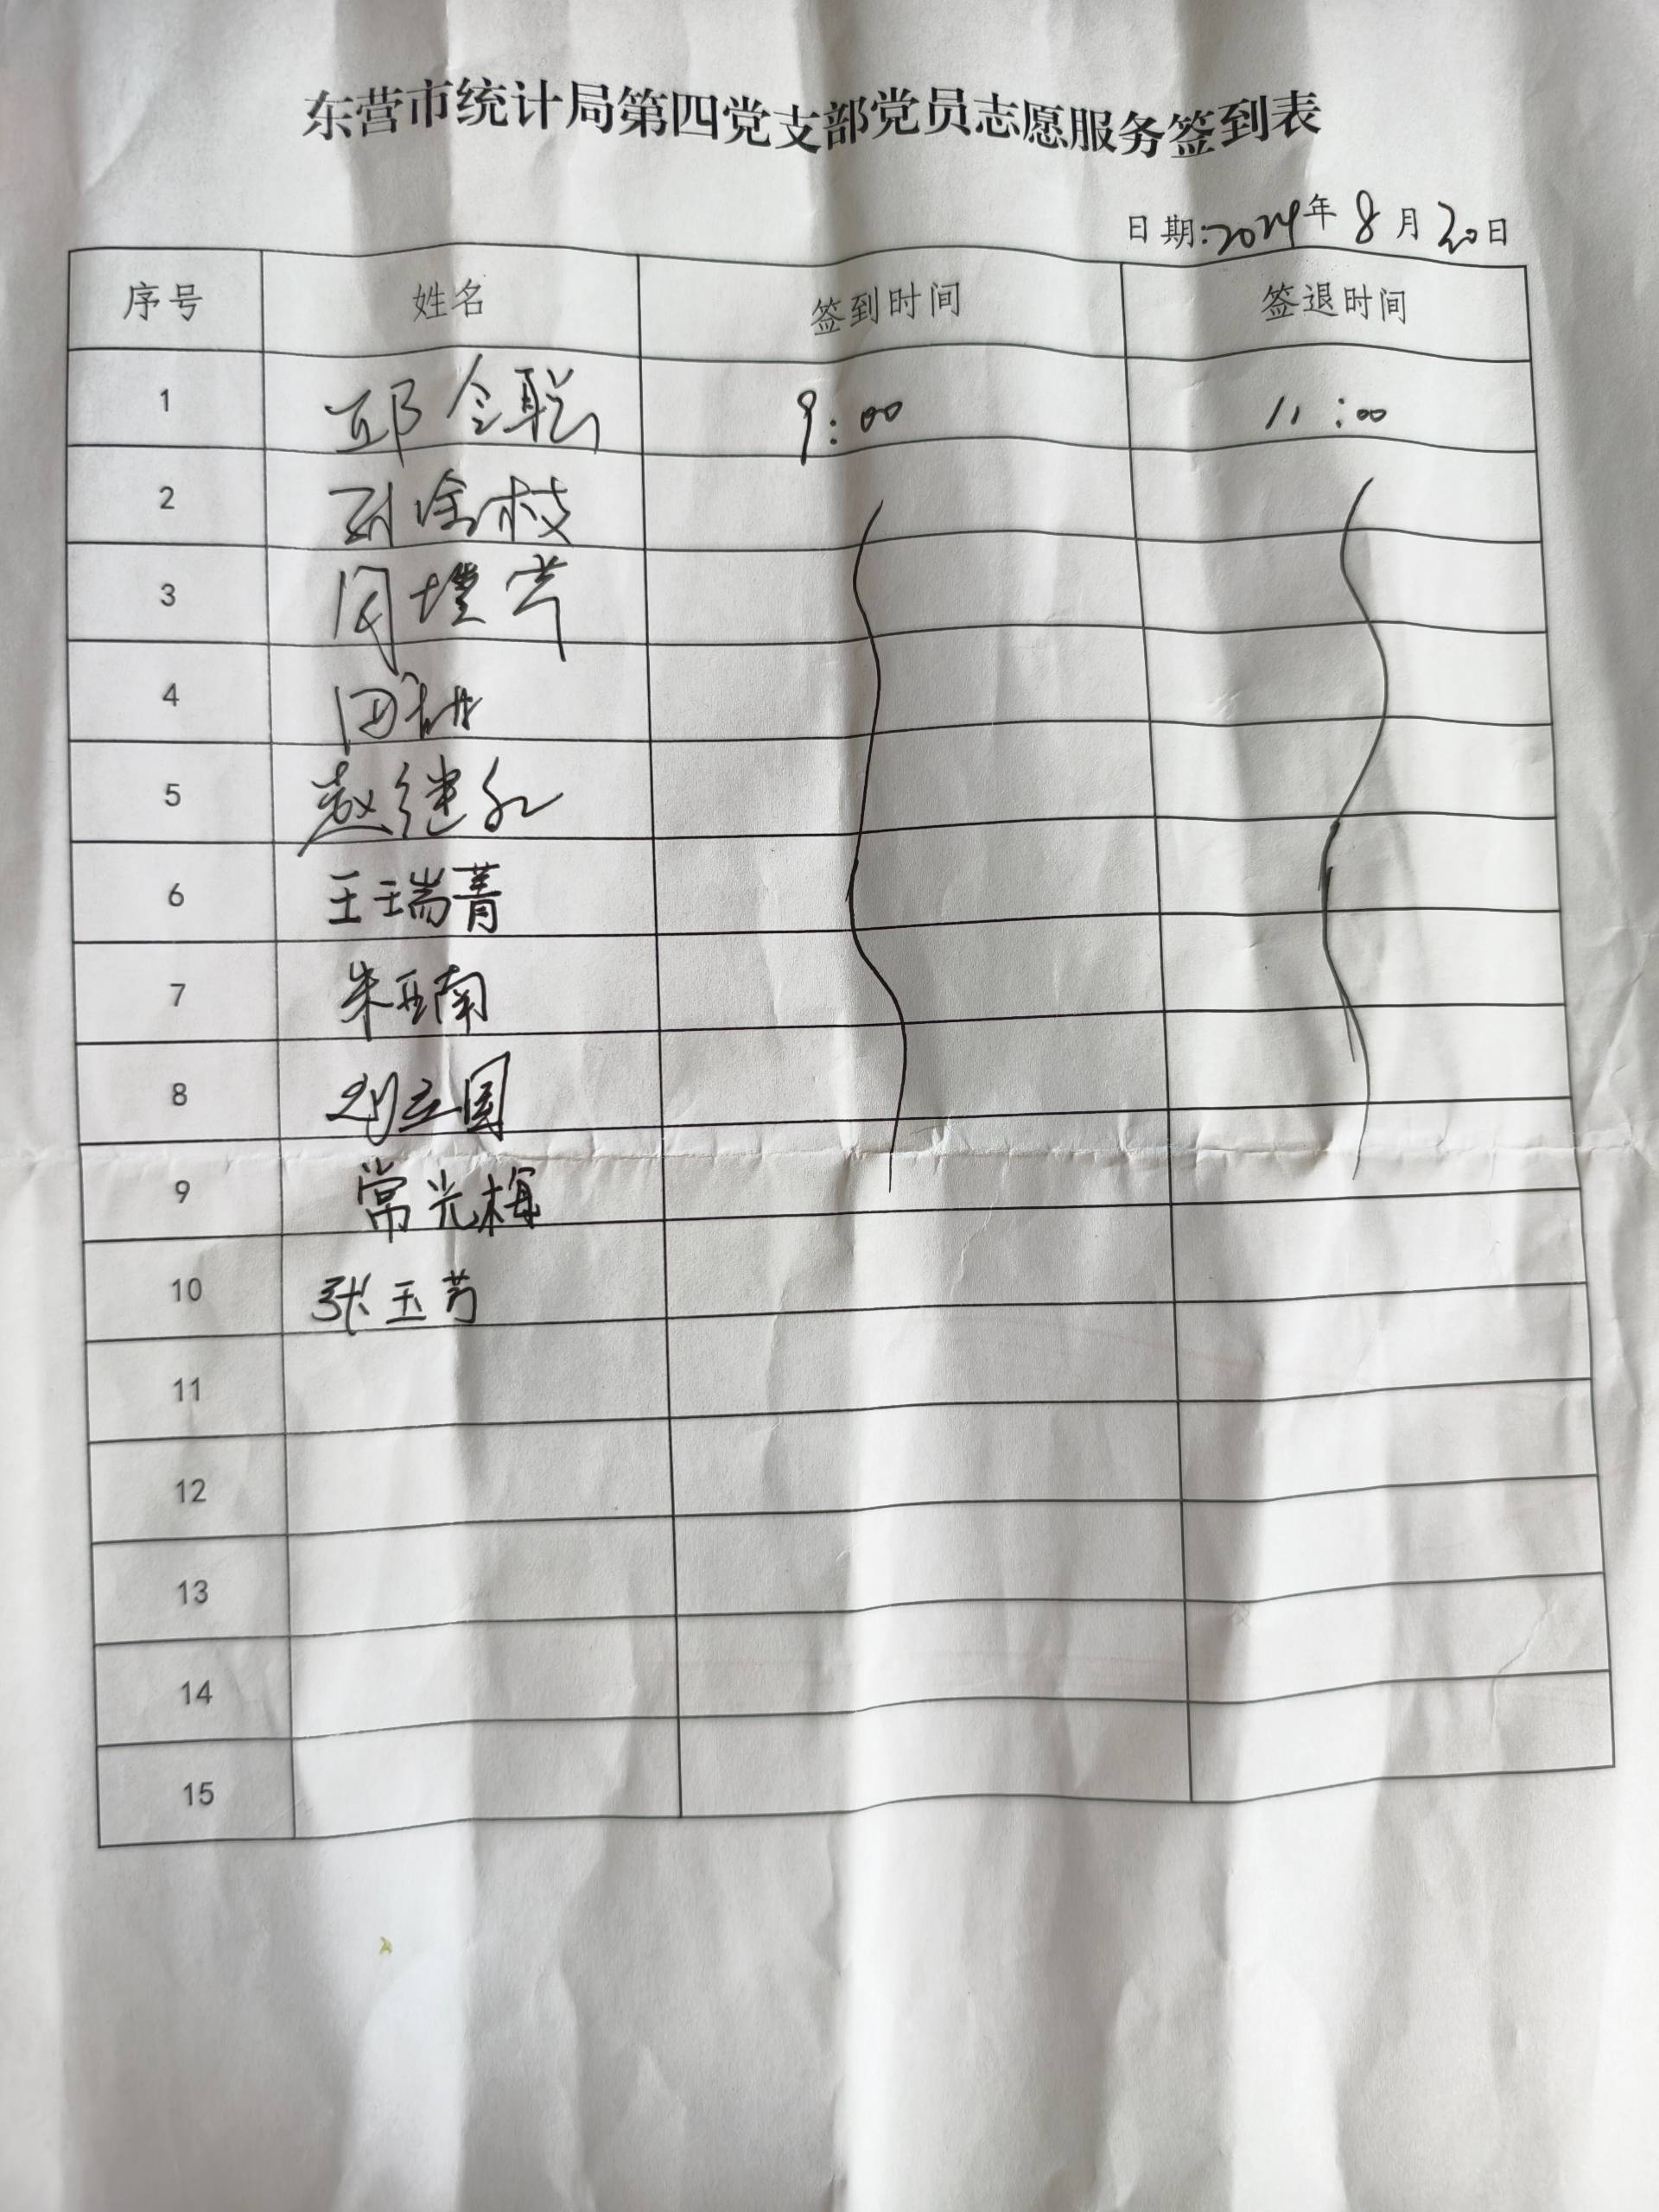 东营市统计局第四党支部党员志愿服务签到表
日期:2024年8月20日
序号 姓名 签到时间 签退时间
1 邱令聪 9:00 11:00
2 孙金枝
3
4 田
5 赵继红
6 王瑞菁
7 朱亚南
8 刘立国
9 常光梅
10 张玉芳
11
12
13
14
15